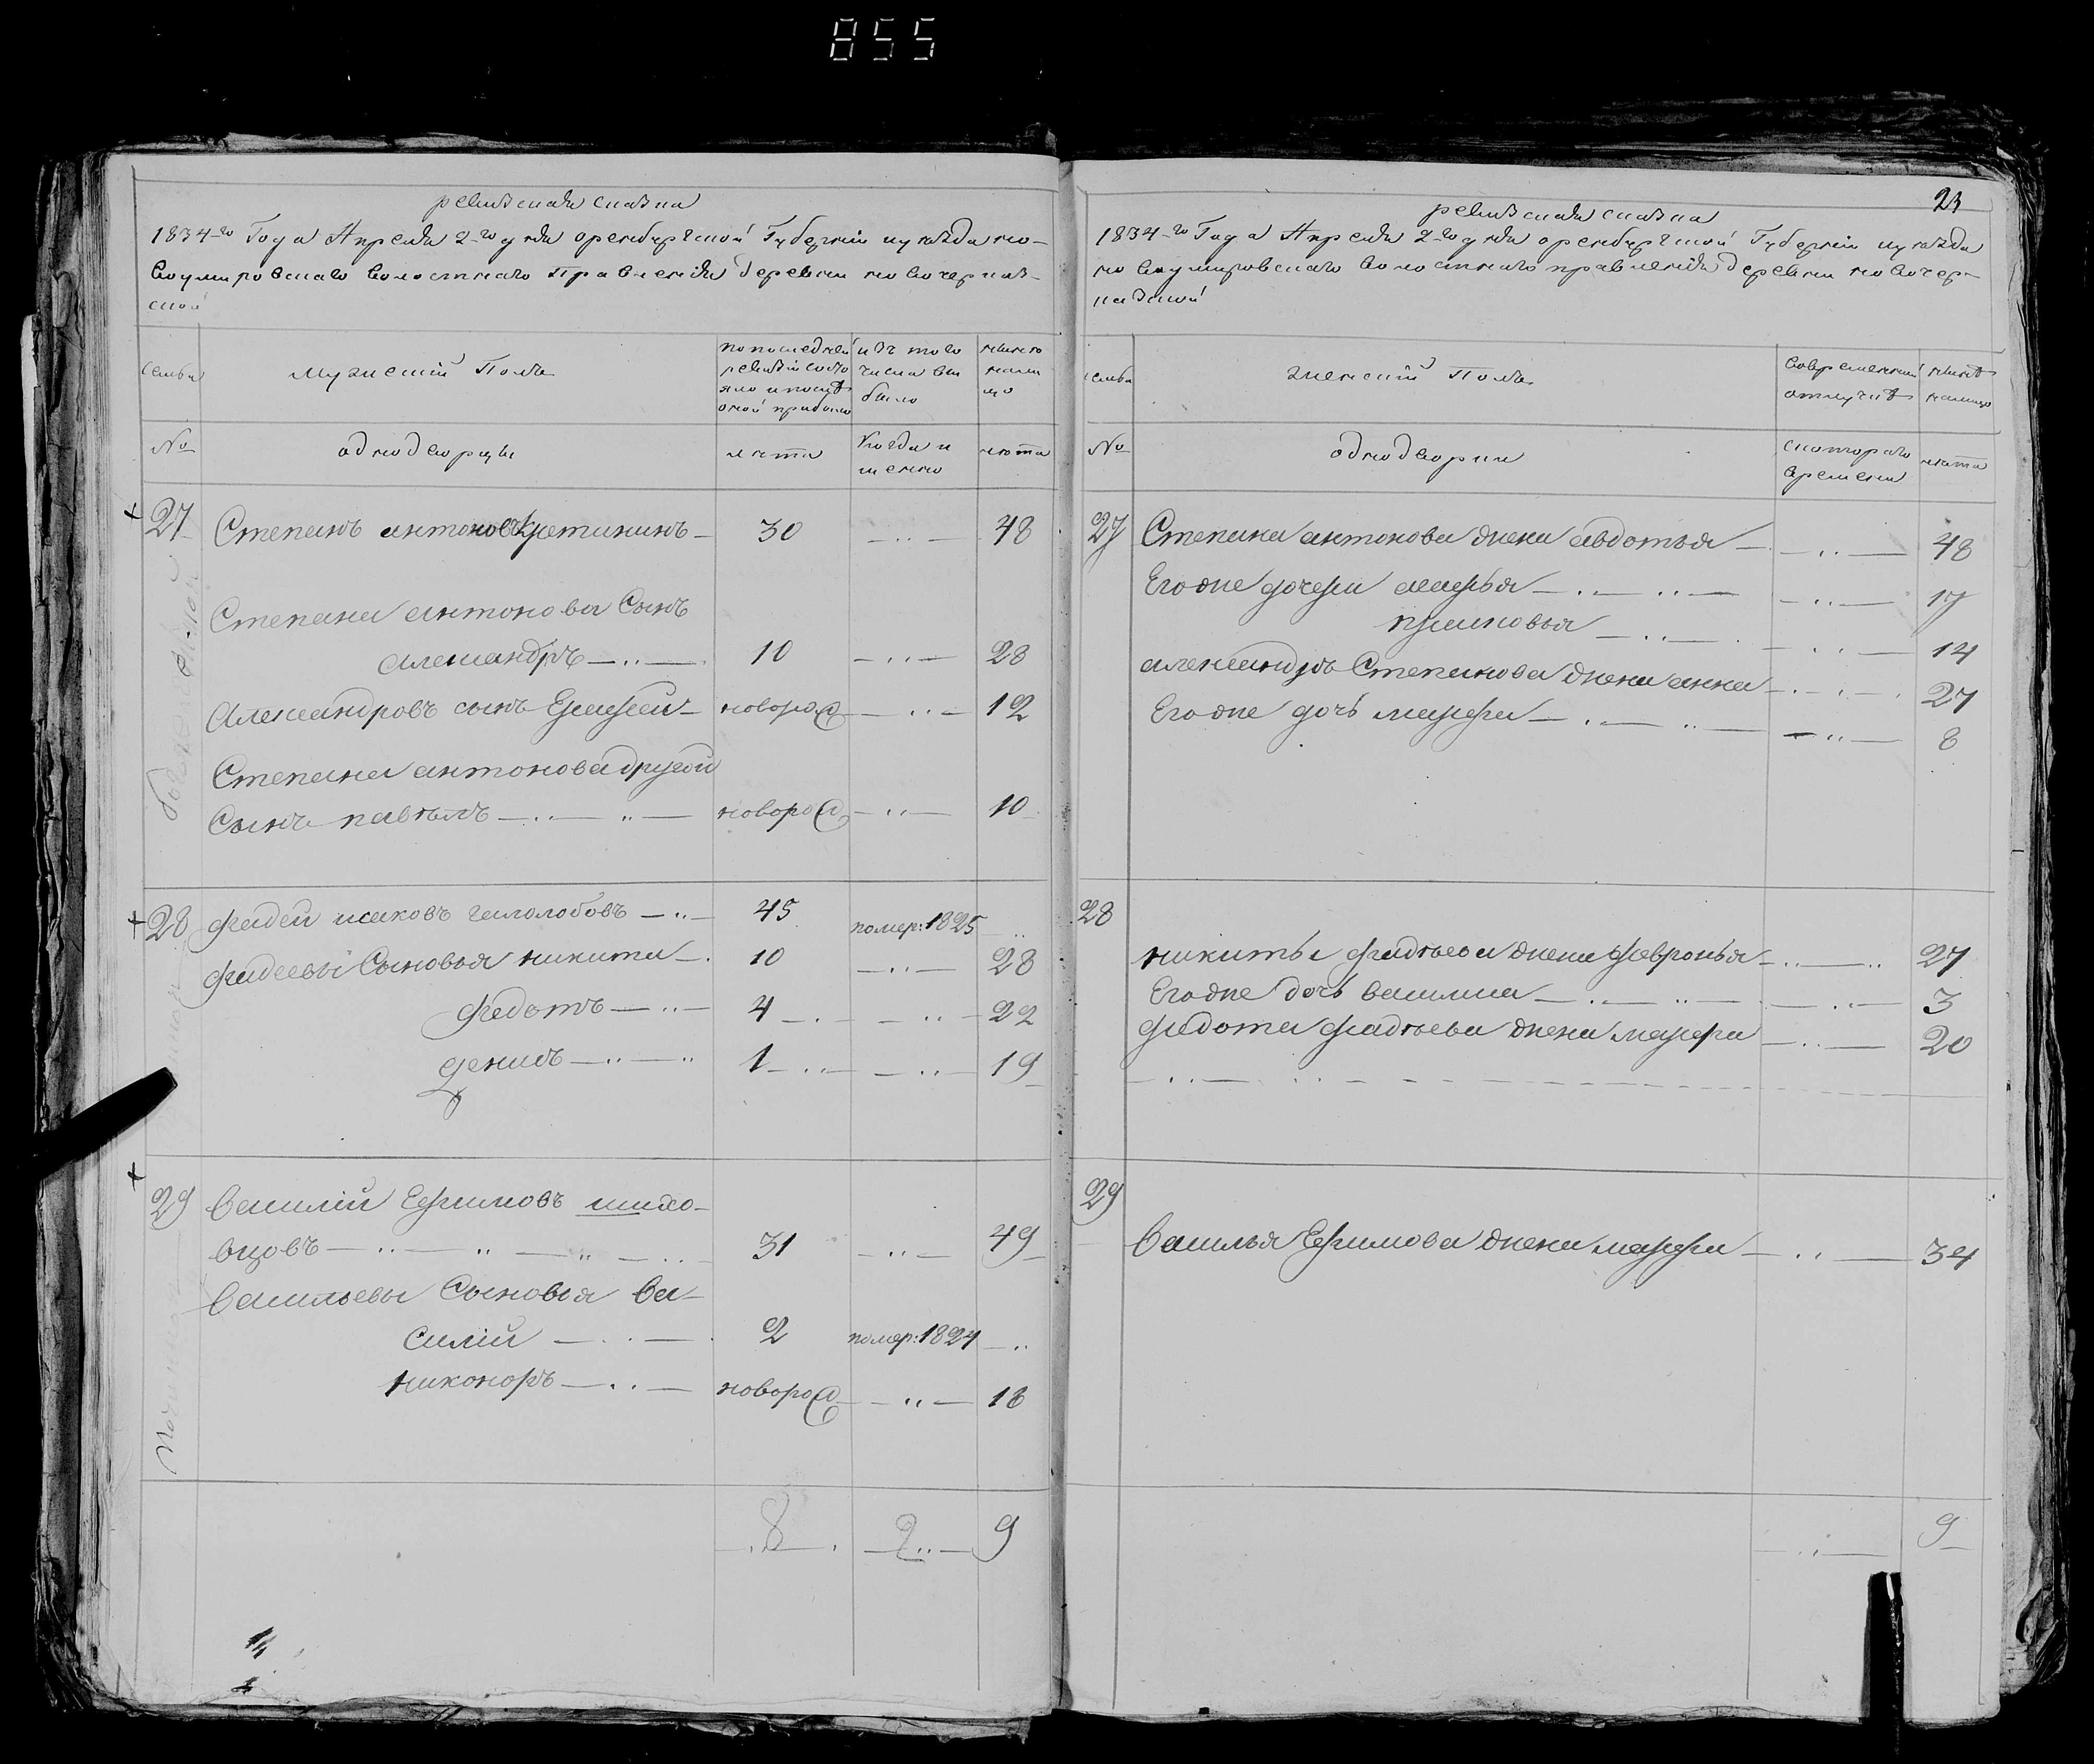 855
ревизская сказка
1834-го Года Апреля 2-го дня оренбургской Губернии и уѣзда но-
воумировскаго волостнаго Правленія деревни новочерказ-
ской
семьи
мужескій Полъ
по последней
ревизіи состо
яло и после
оной прибыло
изъ того
числа вы
было
ныне
нали
цо
№
однодворцы
лѣта
Когда и
менно
лѣта
27 Степанъ антоновъ Кретининъ 30 48
Степана антонова Сынъ
александръ 10 28
Александровъ сынъ Ерафей новорож 12
Степана антонова другой
Сынъ павѣлъ новорож 10
28 фадей исаковъ гололобовъ 45 помер: 1825
фадеевы Сыновья никита 10 28
федотъ 4 22
денисъ 1 19
29 Василій Ефимовъ шихо-
вцовъ 31 49
Васильевы Сыновья Ва-
силій 2 помер: 1824
никоноръ новорож 18
8 2 9
23
ревизская сказка
1834-го Года Апреля 2-го дня оренбургской Губерніи и уѣзда
новоумировскаго волостнаго правленія деревни новочер-
казской
семьи
женскій Полъ
во временной
отлучкѣ
ныне
налицо
№
однодворки
с котораго
времени
лѣта
27 Степана антонова жена авдотья 48
Его же дочери марья 17
прасковья 14
александръ Степанова жена анна 27
Его же дочь марфа 8
28
никиты фадѣева жена февронья 27
Его же дочь василиса 3
федота фадѣева жена марфа 20
29
Василья Ефимова жена марфа 34
9